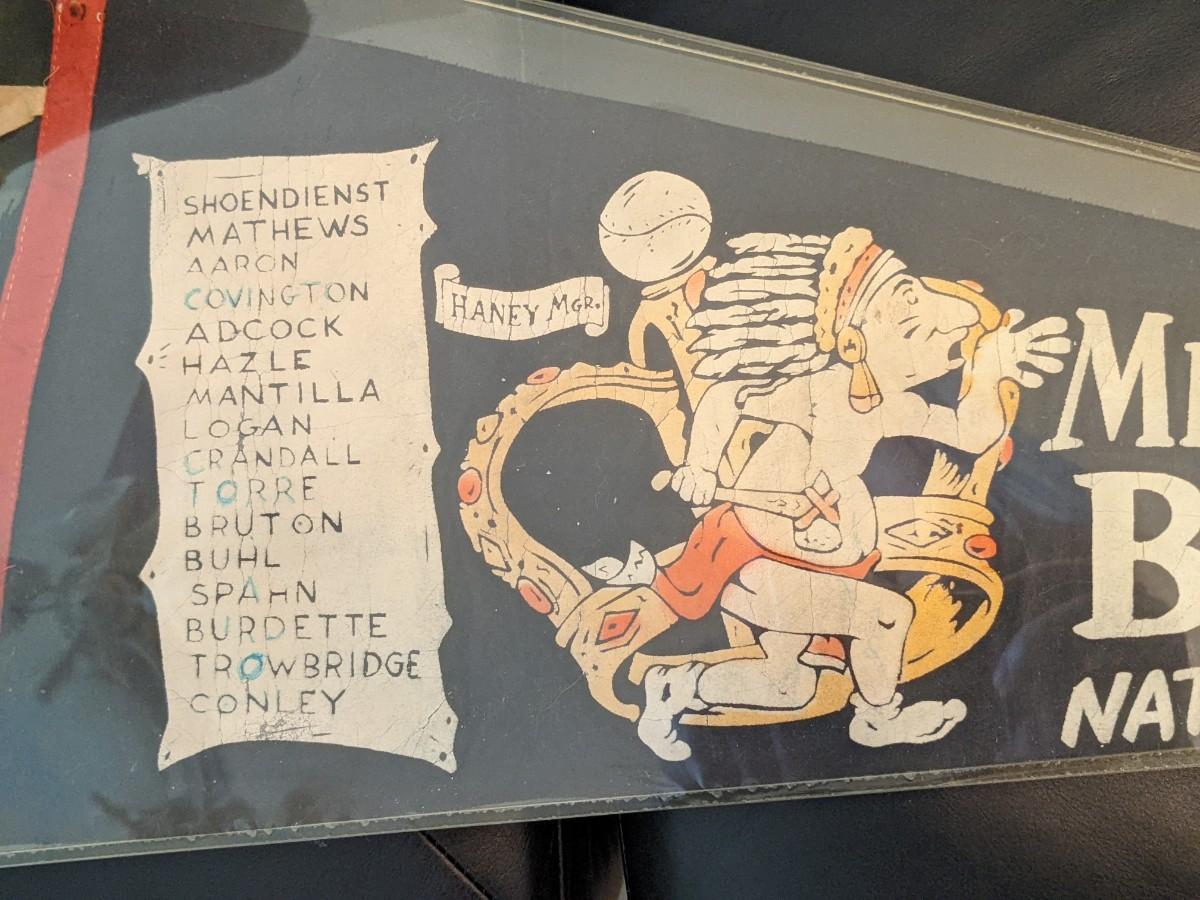 SHOENDIENST
MATHEWS
AARON
COVINGTON
ADCOCK
HAZLE
MANTILLA
LOGAN
CRANDALL
TORRE
BRUTON
BUHL
SPAHN
BURDETTE
TROWBRIDGE
CONLEY
HANEY MGR.
M
B
NAT